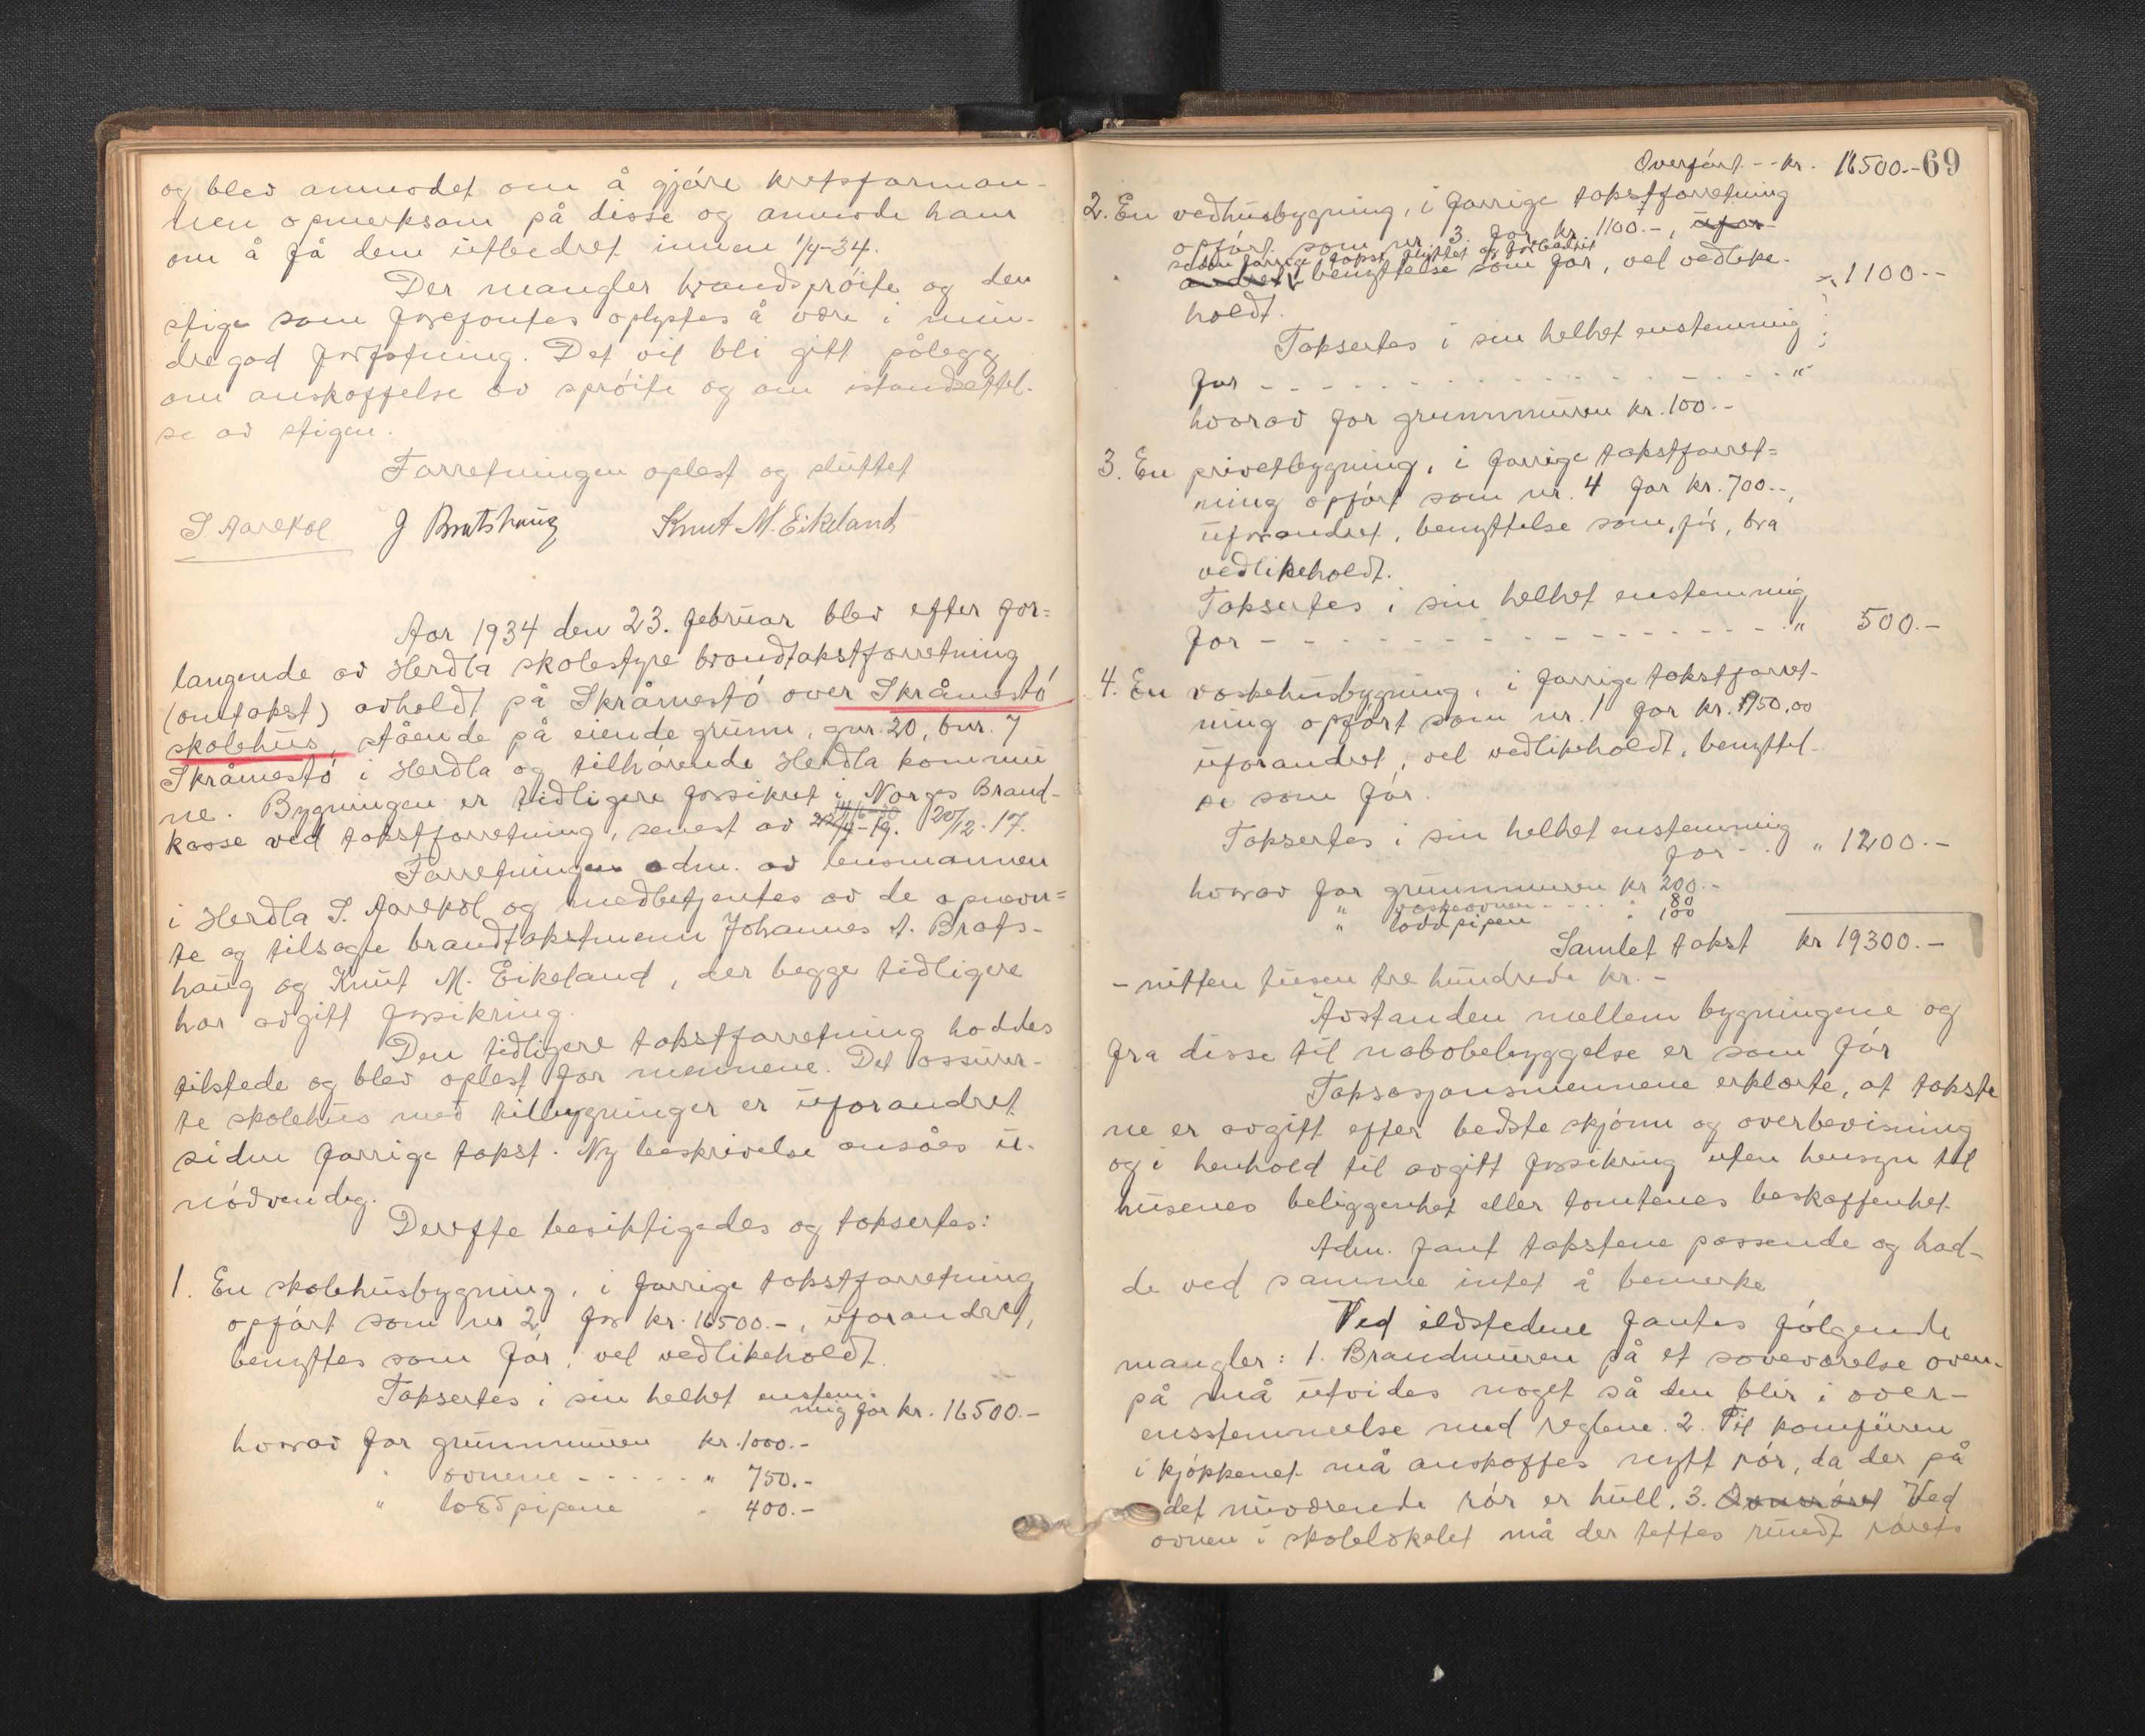 og blev anmodet om å gjøre kretsforman-
nen opmerksom på disse og anmode ham
om å få dem utbedret innen 1/4-34.
Der mangler brandsprøite og den
stige som forefantes oplystes å være i min-
dre god forfatning. Det vil bli gitt pålegg
om anskaffelse av sprøite og om istandsettel-
se av stigen.
Forretningen oplest og sluttet
J Bratshaug Knut M. Eikeland
Aar 1934 den 23. februar blev efter for-
langende av Herdla skolestyre brandtakstforretning
(omtakst) avholdt på Skråmestø over Skråmestø
skolehus, stående på eiende grunn, gnr. 20, bnr. 7
Skråmestø i Herdla og tilhørende Herdla kommu
ne. Bygningen er tidligere forsikret i Norges Brand-
kasse ved takstforretning, senest av 20/12-17.
Forretningen adm. av lensmannen
i Herdla S. og medbetjentes av de opnevn=
te og tilsagte brandtakstmenn Johannes A. Brats-
haug og Knut M. Eikeland, der begge tidligere
har avgitt forsikring.
Den tidligere takstforretning haddes
tilstede og blev oplest for mennene. Det assurer-
te skolehus med tilbygninger er uforandret
siden forrige takst. Ny beskrivelse ansåes u-
nødvendig.
Derefte besiktigedes og taksertes:
1. En skolehusbygning, i forrige takstforretning
opført som nr 2 for kr. 16500.-, uforandret,
benyttes som før, vel vedlikeholdt.
Taksertes i sin helhet enstem-
mig for kr. 16500.-
hvorav for grunnmuren kr. 1000.-
" ovnene - - - - - " 750.-
" loddpipene " 400.-
Overført - - kr. 16500.- 69
2. En vedhusbygning, i forrige takstforretning
opført som nr. 3 for kr. 1100.-, ufor-
siden forrige takst flyttet og forbedret
andret, benyttelse som før, vel vedlike-
holdt.
Taksertes i sin helhet enstemmig
for - - - - - - - - - - - " 1100.-
hvorav for grunnmuren kr. 100.-
3. En privetbygning, i forrige takstforret=
ning opført som nr. 4 for kr. 700.-,
uforandret, benyttelse som før, bra
vedlikeholdt.
Taksertes i sin helhet enstemmig
for - - - - - - - - - - - " 500.-
4. En vaskehusbygning, i forrige takstforret-
ning opført som nr. 1 for kr. 1950,00
uforandret, vel vedlikeholdt, benyttel-
se som før.
Taksertes i sin helhet enstemmig
for - . " 1200.-
hvorav for grunnmuren kr 200.-
" vaskeovnen - - - - " 80
" loddpipen " 100
Samlet takst kr 19300.-
- nitten tusen tre hundrede kr. -
Avstanden mellem bygningene og
fra disse til nabobebyggelse er som før
Taksasjonsmennene erklærte, at takste
ne er avgitt efter bedste skjønn og overbevisning
og i henhold til avgitt forsikring uten hensyn til
husenes beliggenhet eller tomtenes beskaffenhet.
Adm. fant takstene passende og had-
de ved samme intet å bemerke
Ved ildstedene fantes følgende
mangler: 1. Brandmuren på et soveværelse oven-
på må utvides noget så den blir i over-
ensstemmelse med reglene. 2. Til komfuren
i kjøkkenet må anskaffes nytt rør, da der på
det nuværende rør er hull. 3. Ovnsrøret Ved
ovnen i skolelokalet må der tettes rundt rørets